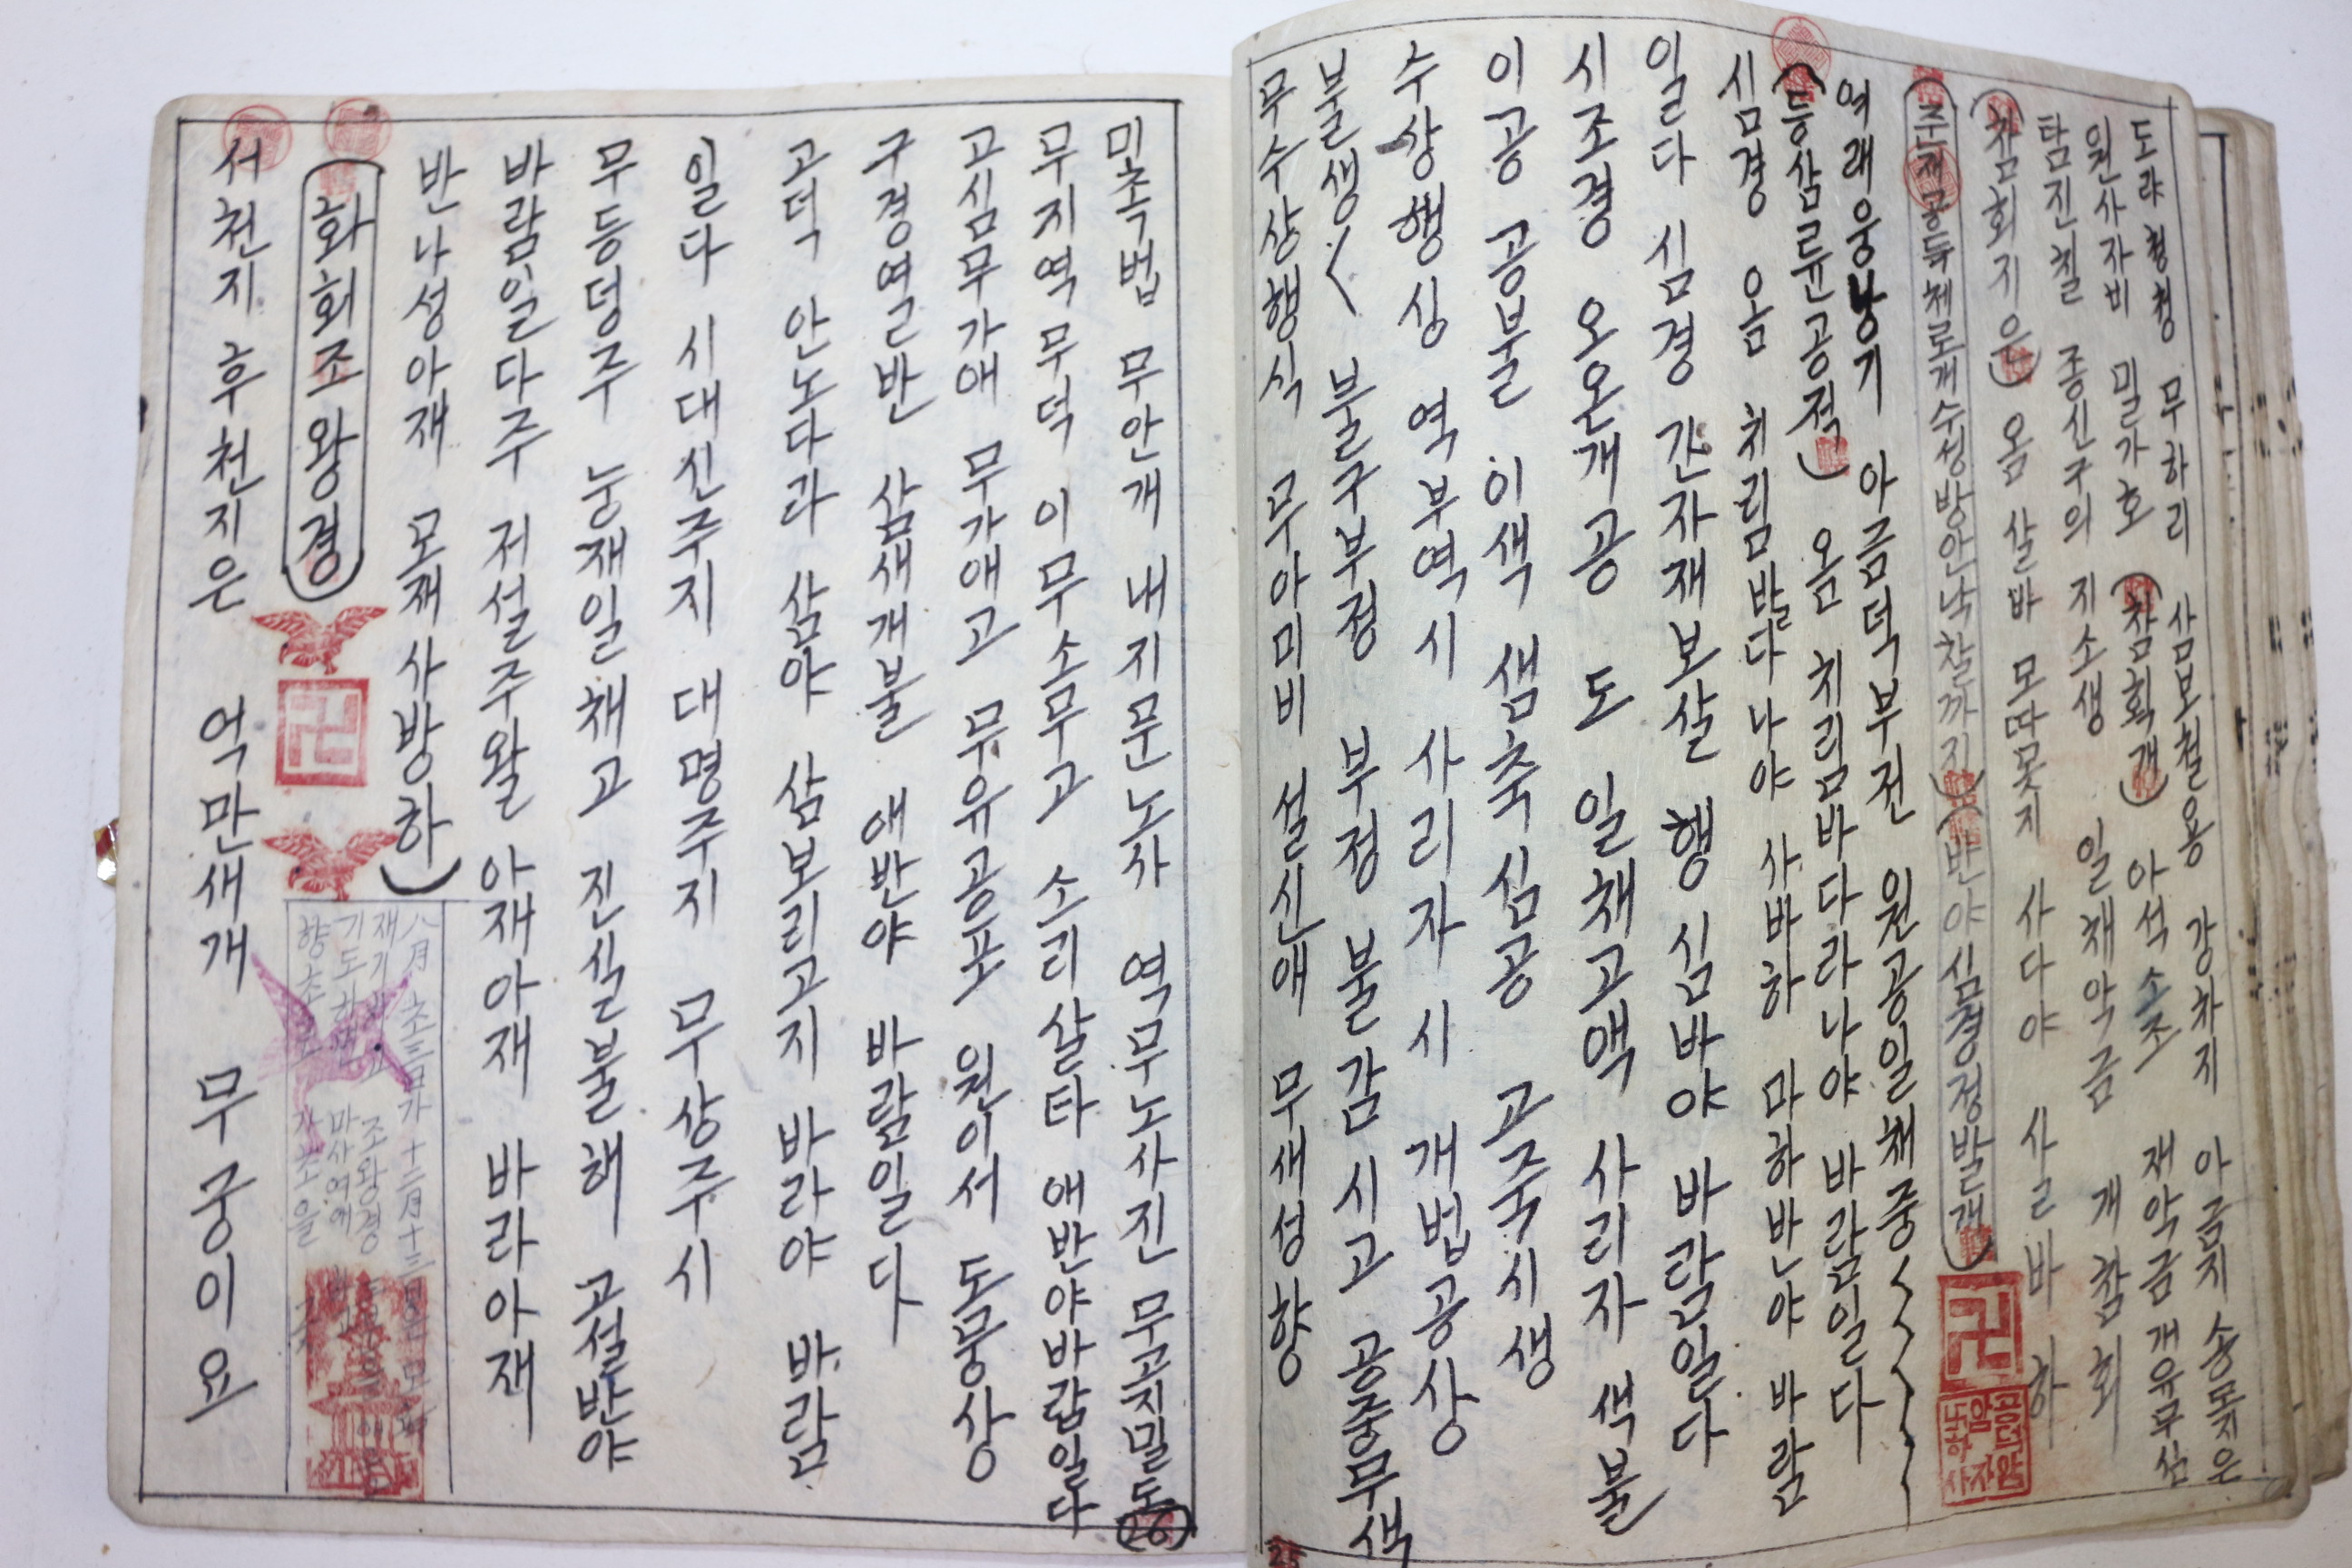 도랴 청청 무하리 삼보철용 강차지 아금지 송묘지은
원사자비 밀가호 (참회개) 아석 소조 재악금개유무심
탐진칠 종신구의 지소생 일채악금 개참회
(참회지은) 옴 살바 모따못지 사다야 사르바하
수성방안낙찰까지) (반야심경경발래)
여래웅 아금덕부전 원공일채중
(등삼륜공적) 옴 치림바다라나야 바람일다
심경 옴 치림발다나야 사바하 마하반야 바람
일다 심경 간자재보살 행심바야 바람일다
시조경 오온개공 도 일채고액 사리자 색불
이공 공불이색 샘축심공 고죽시생
수상행싱 역부역시 사리자시 개법공상
불생 불구부정 부정불감 시고 공중무색
무수상행식 무아미비 설신애 무새성향
25
미촉법 무안개 내지문노사 역무노사진 무고지밀도
무지역무덕 이무소무고 소리살타 애반야바람일다
고심무가애 무가애고 무유공포 원이서 도뭉상
구경열반 삼새개불 애반야 바람일다
고덕 안노다라 삼야 삼보리고지 바라야 바람
일다 시대신주지 대명주지 무상주시
무등덩주 눙재일채고 진실불해 고설반야
바람일다주 저설주왈 아재아재 바라아재
반나성아재 모재사방하)
(화회조왕경)
八月 초三 十二月 十三
조왕경
서천지 후천지은 억만새개 무궁이요
(26)